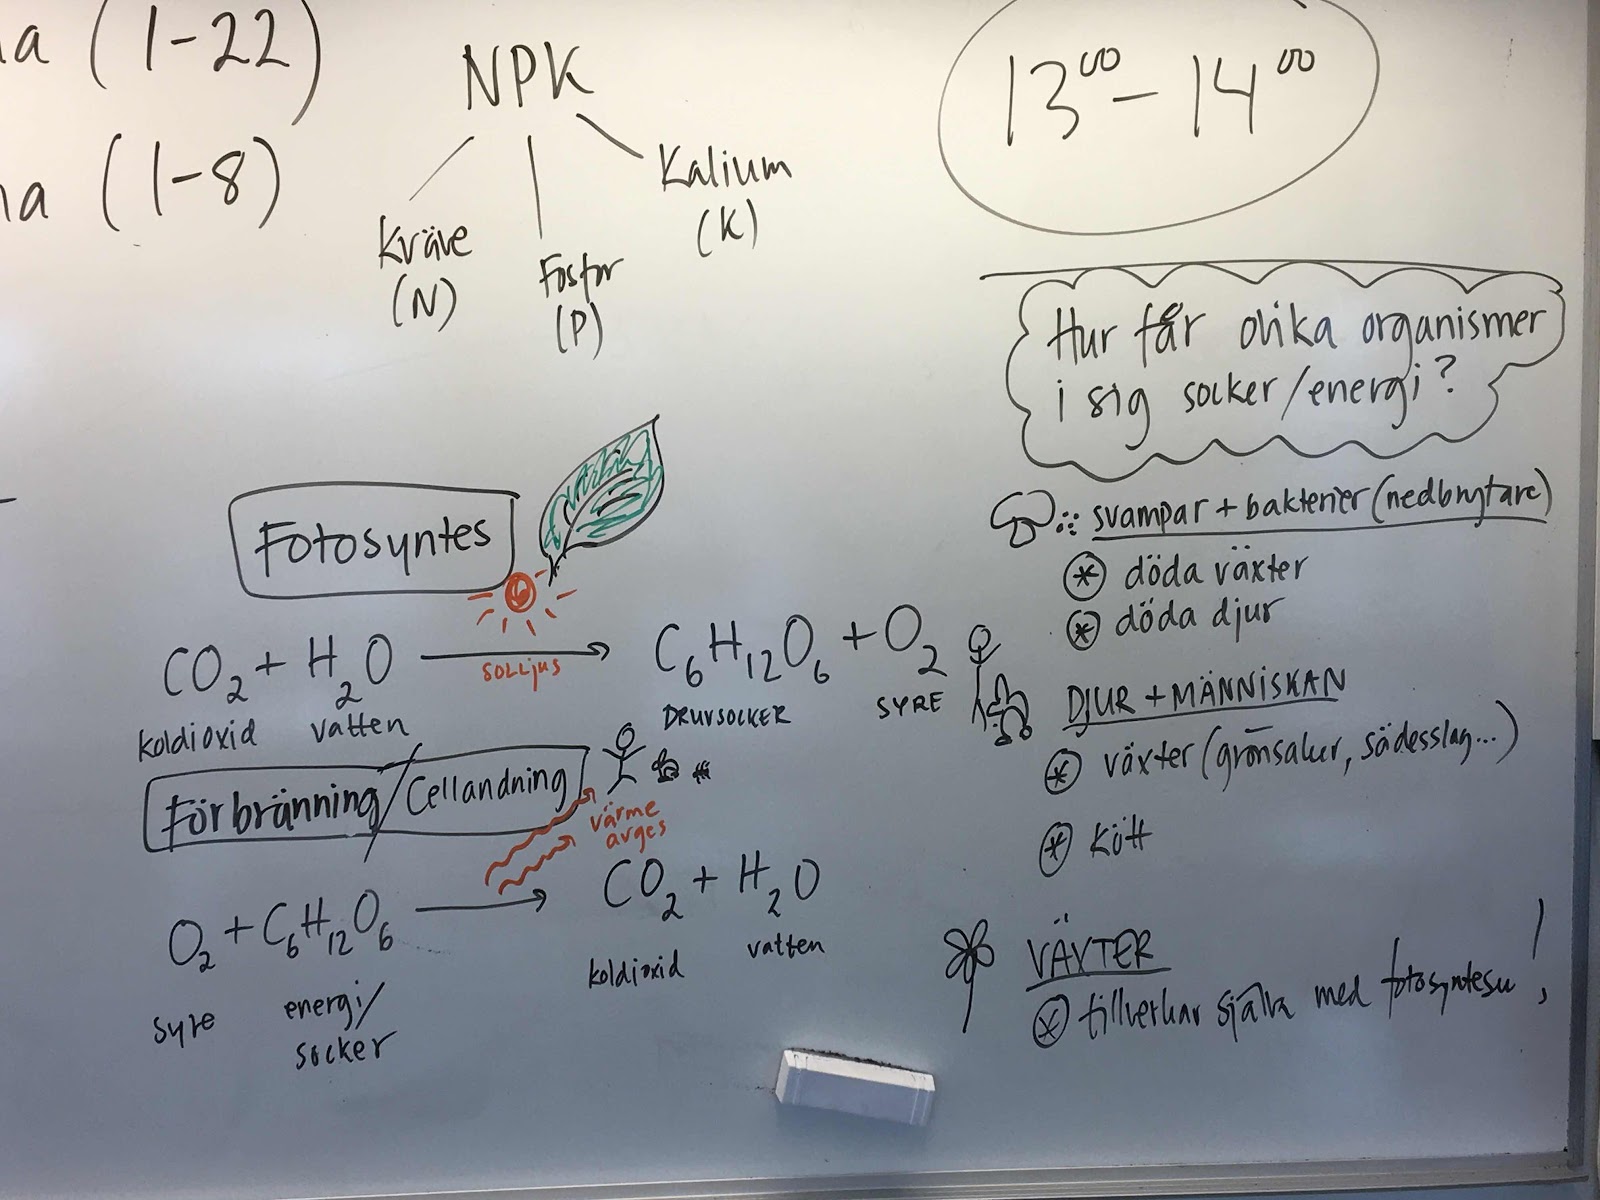 a (1-22)
a (1-8)
NPK
Kväve
(N)
Fosfor
(P)
Kalium
(K)
13⁰⁰ - 14⁰⁰
Hur får olika organismer
i sig socker/energi?
svampar + bakterier (nedbrytare)
döda växter
döda djur
DJUR + MÄNNISKAN
växter (grönsaker, sädesslag...)
kött
VÄXTER
tillverkar själva med fotosyntesen!
Fotosyntes
CO₂ + H₂O → C₆H₁₂O₆ + O₂
solljus
koldioxid vatten DRUVSOCKER SYRE
Förbränning/Cellandning
värme
avges
O₂ + C₆H₁₂O₆ → CO₂ + H₂O
syre energi/
socker
koldioxid vatten